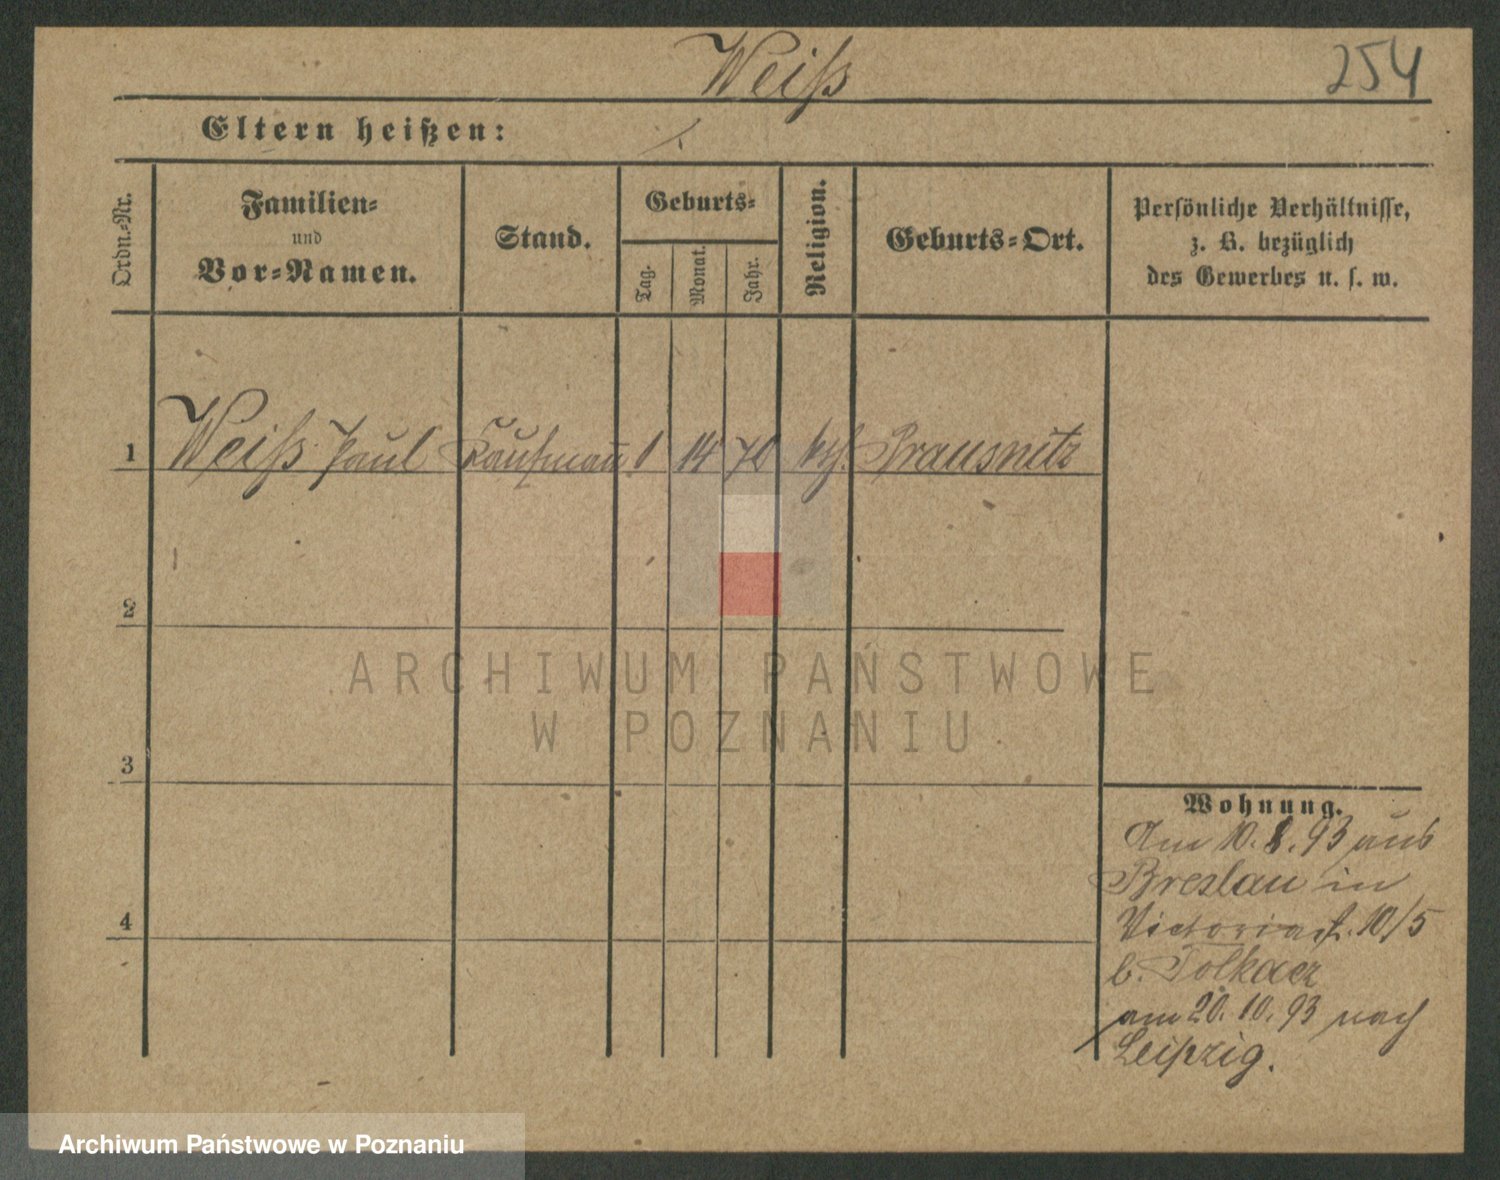 Weiß
254
Eltern heißen:
Ordn.-Nr.
Familien-
und
Vor-Namen.
Stand.
Geburts-
Tag.
Monat.
Jahr.
Religion.
Geburts-Ort.
Persönliche Verhältnisse,
z. B. bezüglich
des Gewerbes u. s. w.
1 Weiß Paul Kaufmann 1 14 70 kth. Prausnitz
2
3
4
Wohnung.
Am 10. 8. 93 aus
Breslau in
Victoriast. 10/5
b.
am 20. 10. 93 nach
Leipzig.
ARCHIWUM PAŃSTWOWE
W POZNANIU
Archiwum Państwowe w Poznaniu